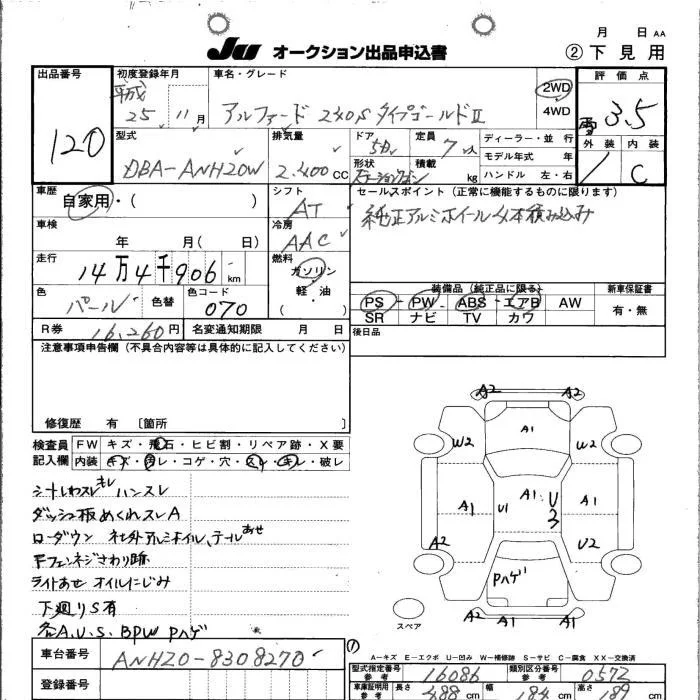 月 日 AA
JU オークション出品申込書 ②下見用
出品番号 初度登録年月 車名・グレード 2WD 4WD 評価点
120 平成 25 11月 アルファード 240S タイプゴールドII 3.5
型式 排気量 ドア 定員 ディーラー・並行 外装 内装
DBA-ANH20W 2.400CC 5Dr 7人 モデル年式 年 / C
形状 積載 kg ハンドル 左・右
ステーションワゴン
車歴 自家用・( ) シフト AT セールスポイント(正常に機能するものに限ります)
車検 年 月( 日) 冷房 AAC 純正アルミホイール4本積み込み
走行 14万4千906km 燃料 ガソリン 軽・油 ( )
色 パール 色替 色コード 070
装備品(純正品に限る) 新車保証書
PS PW ABS エアB AW 有・無
SR ナビ TV カワ
R券 16,260円 名変通知期限 月 日 後日品
注意事項申告欄(不具合内容等は具体的に記入してください)
修復歴 有 [箇所 ]
検査員 FW キズ・飛石・ヒビ割・リペア跡・X要
記入欄 内装 キズ・ヨレ・コゲ・穴・スレ・キレ・破レ
シートしわスレキレ ハンスレ
ダッシュ板めくれスレA
ローダウン 社外アルミホイル、テールあせ
Fフェンネジさわり跡
ライトあせ オイルにじみ
下廻りS有
各A.U.S.BPW Pハゲ
A2 A2
W2 A1 W2
A1 U1 A1 U3 A1
A2 U2
Pハゲ
A1 A2 A1
スペア
A-キズ E-エクボ U-凹み W-補修跡 S-サビ C-腐食 XX-交換済
車台番号 ANH20-8308270
①
型式指定番号 参考 16086 類別区分番号 参考 0572
登録番号
車庫証明用 参考 長さ 488cm 幅 184cm 高さ 189cm